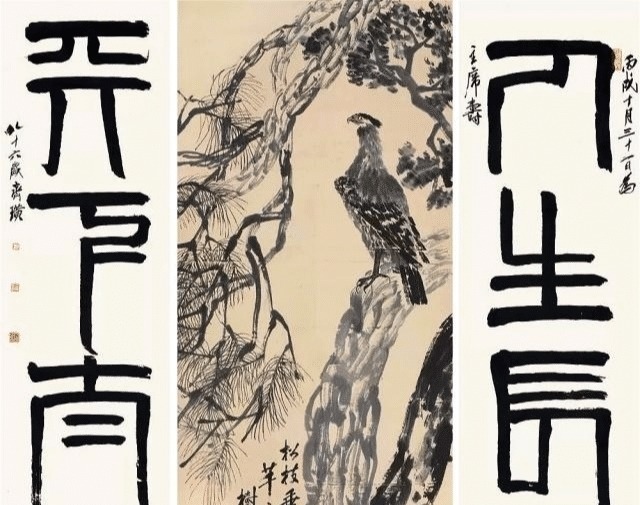 人生長
丙戌十月三十一日為
主席壽
松枝
樹
天下太
八十六歲齊璜